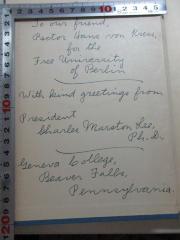 To our friend,
Pastor Hans von
for the
Free University
of Berlin
With kind greetings from
President
Charles Marston Lee,
Ph.D.
Geneva College,
Beaver Falls,
Pennsylvania.